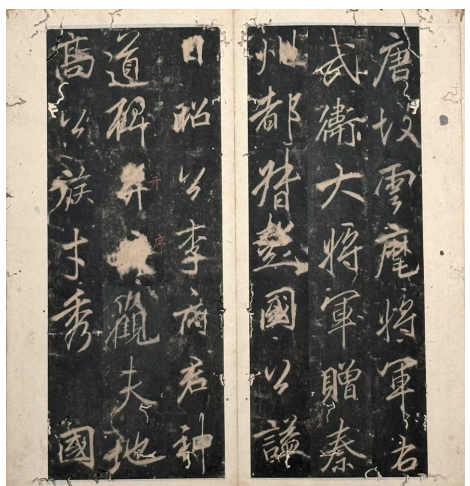 唐故雲麾將軍右
武衛大將軍贈秦
州都督彭國公謚
曰昭公李府君神
道碑并序觀夫地
高公族才秀國